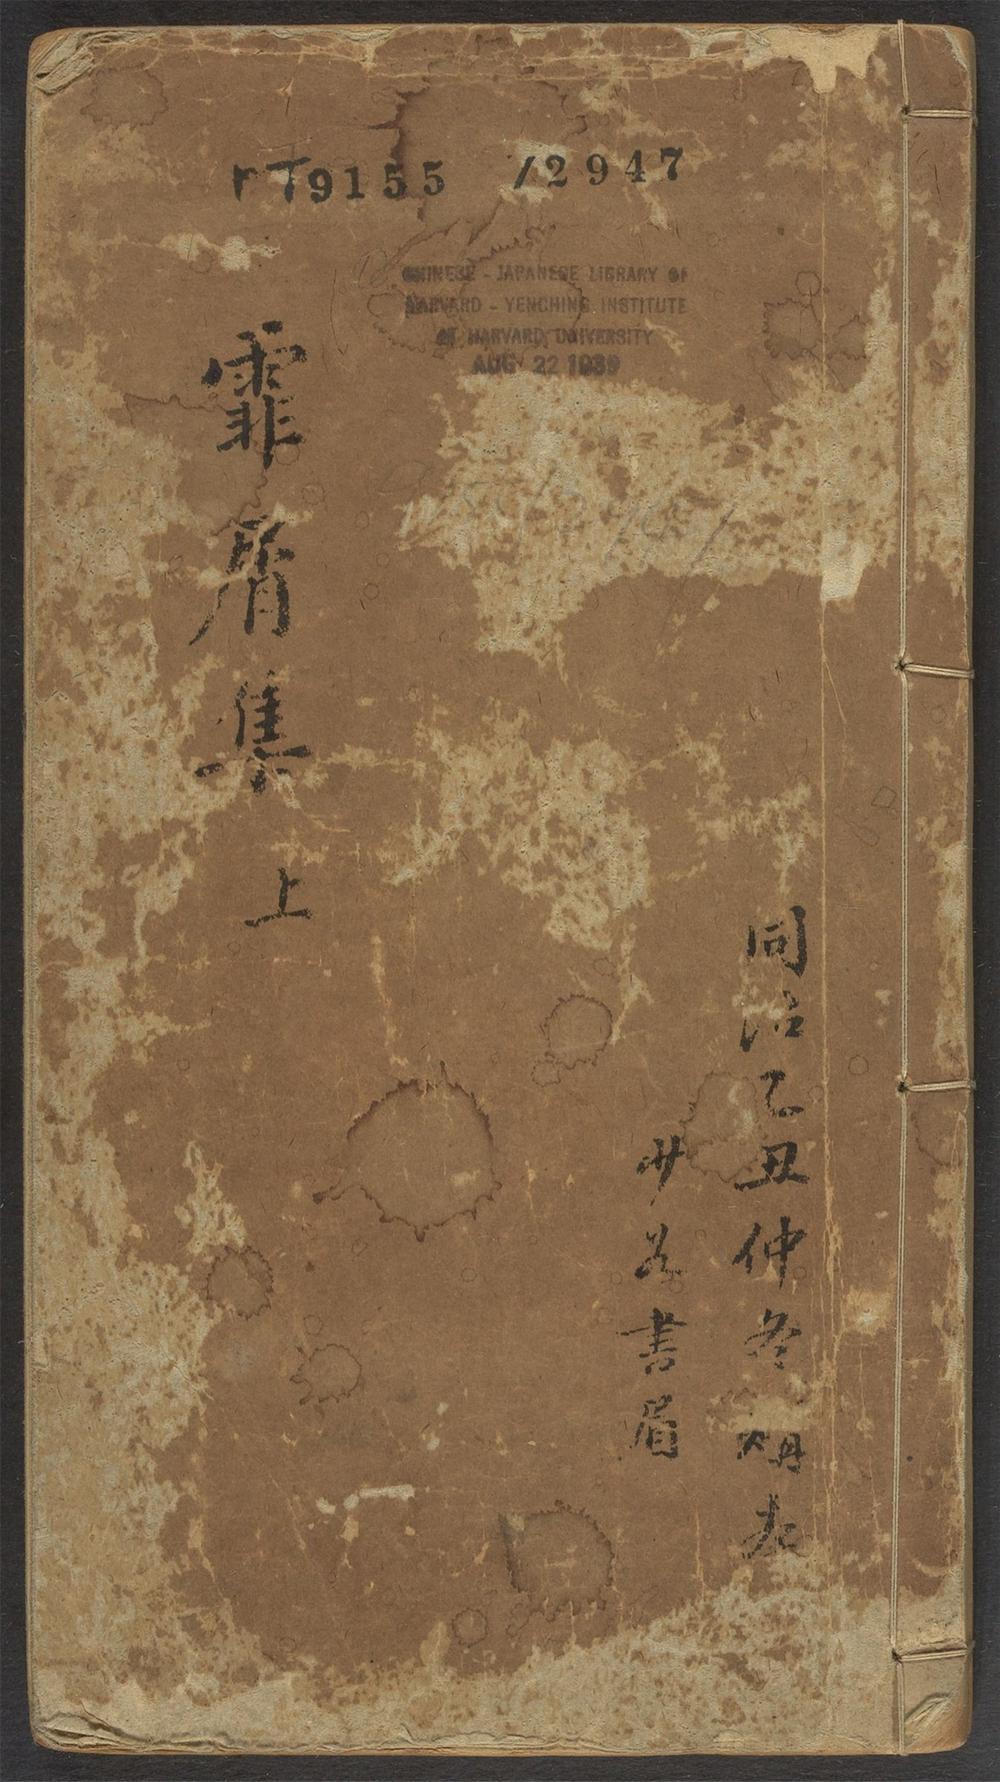 T9155 /2947
CHINESE - JAPANESE LIBRARY OF
HARVARD - YENCHING INSTITUTE
AT HARVARD UNIVERSITY
AUG 22 1939
同治乙丑仲冬
書眉
霏屑集 上